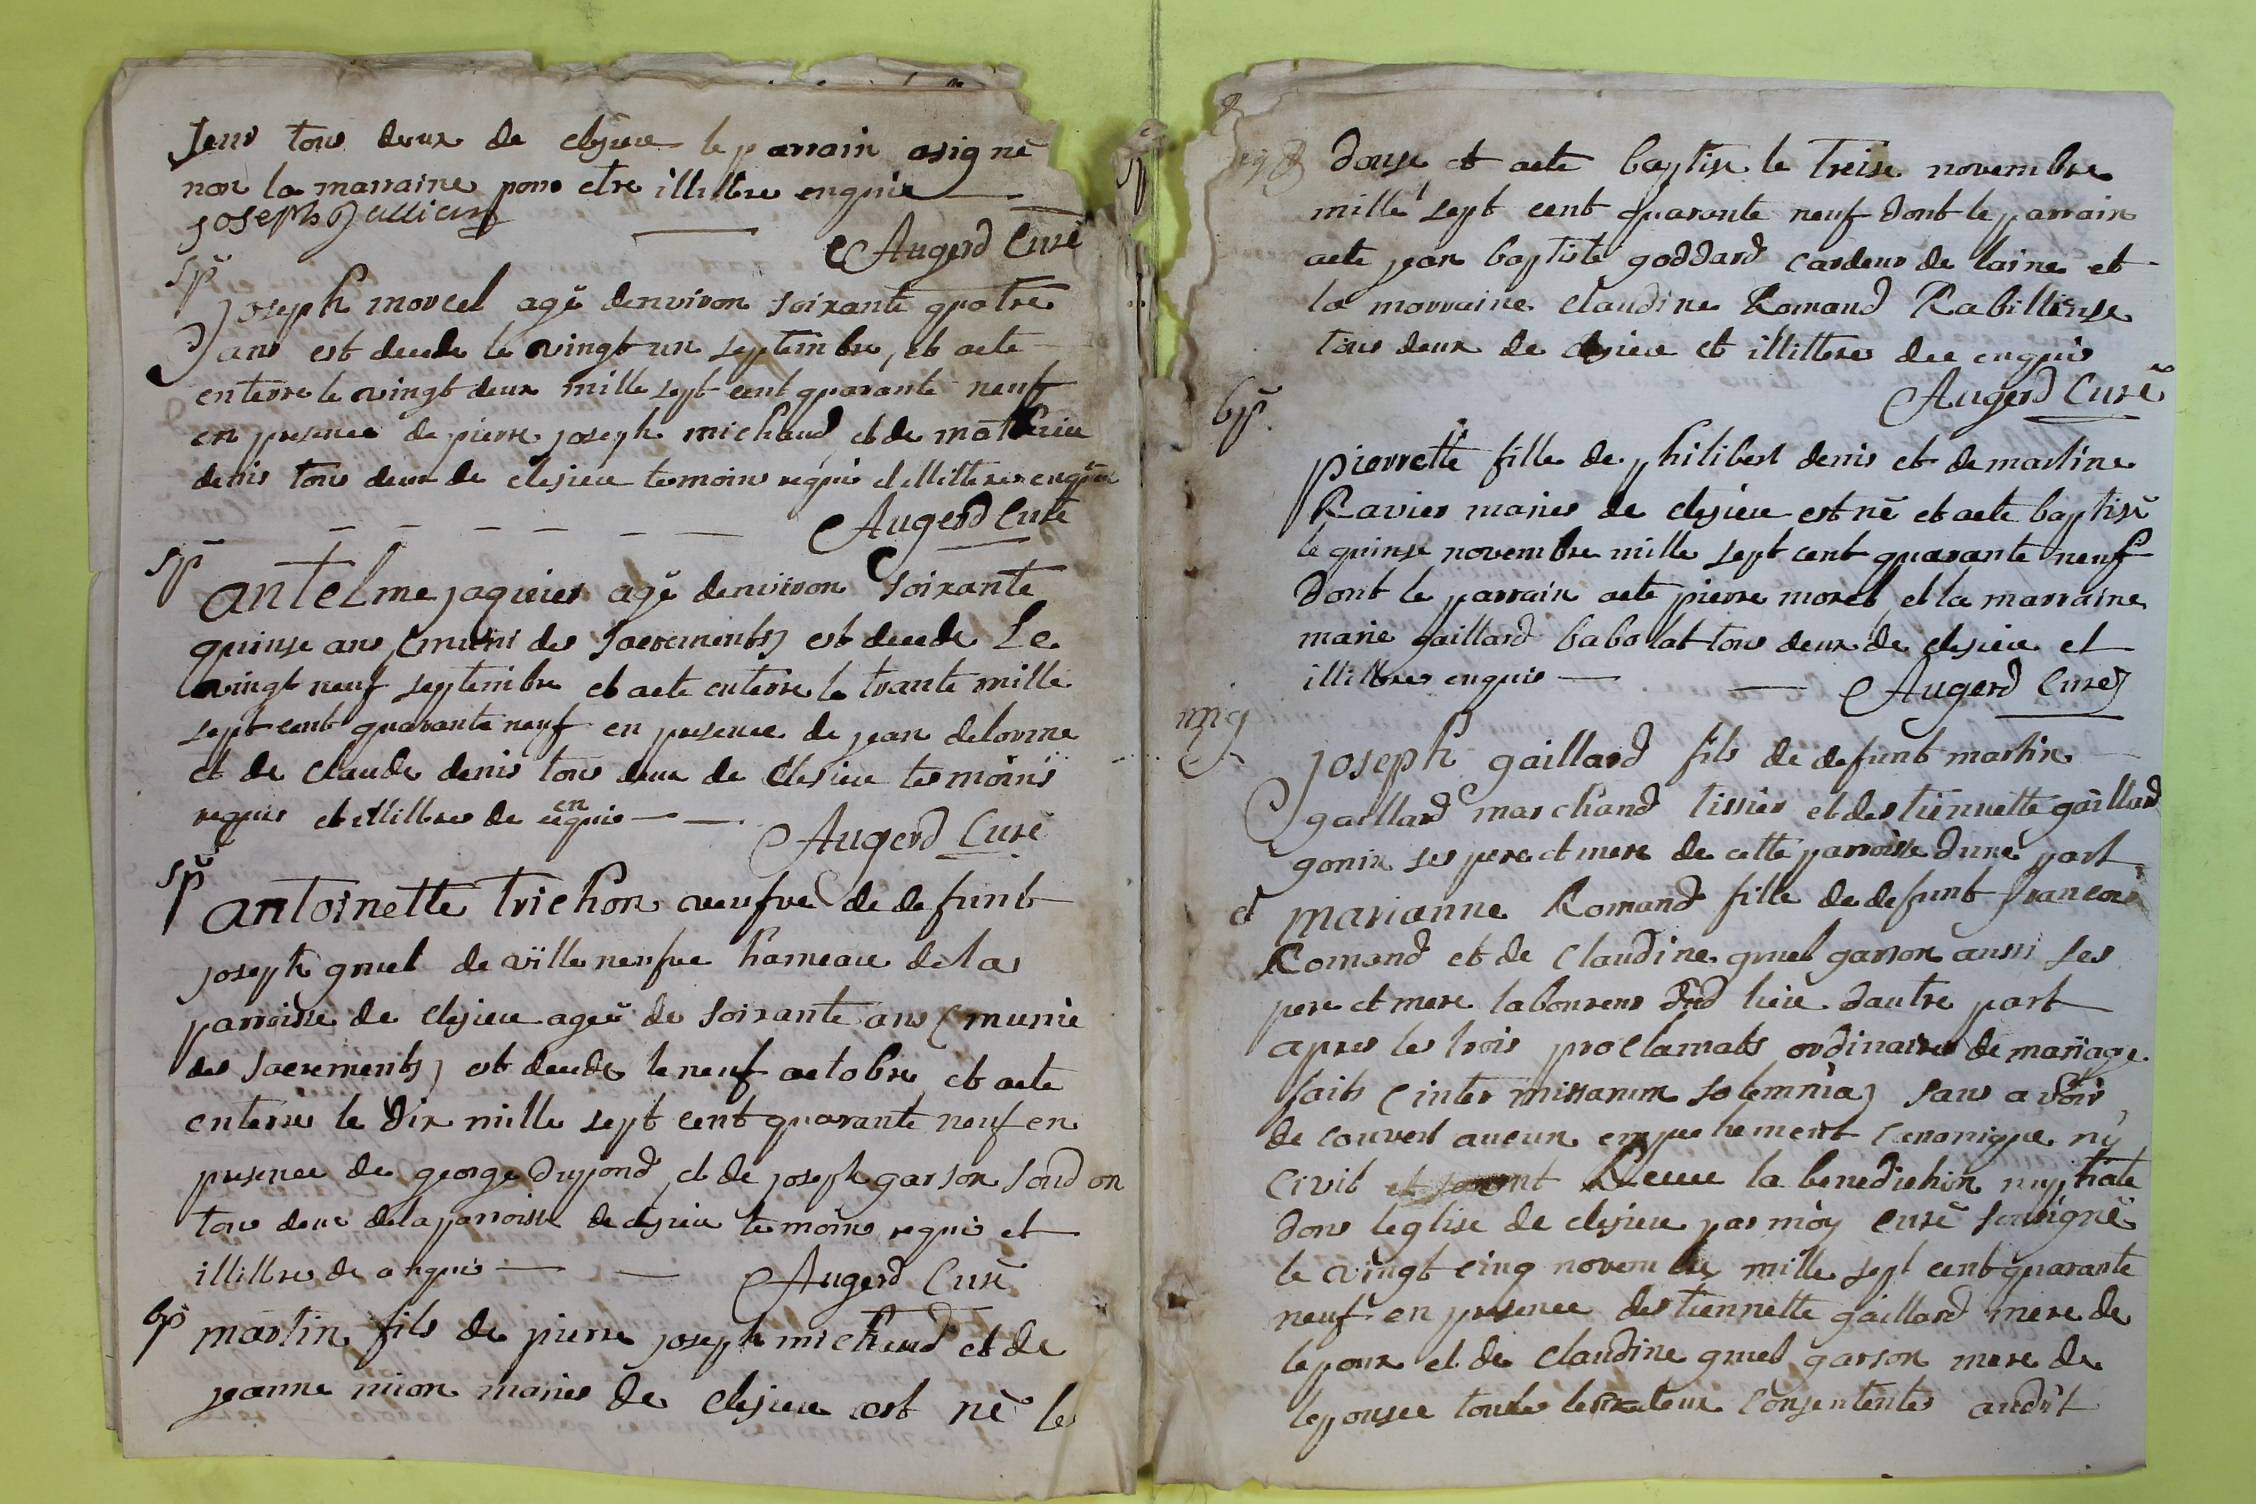 tous deux de clesieu le parrain asigné
non la marraine pour etre illittere enquise
joseph jullian
Augerd Curé
sp
joseph morcel agé denviron soixante quatre
ans est decede le vingt un septembre, et aete
enterre le vingt deux mille sept cent quarante neuf
en presence de pierre joseph michaud et de mathieu
denis tous deux de clesieu temoins requis et illitteres enquis
Augerd Curé
sp
antelme jaquier agé denviron soixante
quinse ans (muni des sacrements) est decede Le
vingt neuf septembre et aete enterre le trante mille
sept cent quarante neuf en presence de jean delorme
et de claude denis tous deux de Clesieu temoins
requis et illittres de en equis
Augerd Curé
sp
antoinette trichon veufve de defunt
joseph gruel de ville neufve hameau de la
parroisse de clesieu ageé de soixante ans (munie
des sacrements) est decede le neuf actobre et aete
enterrée le Dix mille sept cent quarante neuf en
presence de george dupond et de joseph garson
tous deux de la parroisse de clesieu temoins requis et
illittres de anquis
Augerd Curé
bp
martin fils de pierre joseph michaud et de
jeanne mion maries de clesieu est né le
douse et aete baptise le treise novembre
mille sept cent quarante neuf dont le parrain
aete jean baptiste goddard cardeur de laine et
la marraine claudine Romand Rabilliouse
tous deux de clesieu et illitteres dee enquis
Augerd Curé
bp
pierrette fille de philibert denis et de martine
Ravier maries de clesieu est né et aete baptisé
le quinse novembre mille sept cent quarante neuf
Dont le parrain aete pierre morel et la marraine
marie gaillard babolat tous deux de clesieu et
illittres enquis
Augerd Curé
mg
joseph gaillard fils de defunt martin
gaillard marchand tissier et destiennette gaillard
gonin ses pere et mere de cette parroisse dune part
et marianne Romand fille de defunt francois
Romand et de Claudine gruel garson aussi ses
pere et mere laboureurs dud lieu dautre part
apres les trois proclamats ordinaires de mariage
faits (inter missarum solemnia) sans avoir
decouvert aucun empechement canonique ny
civil et Receu la benediction nuptiale
dans leglise de clesieu par moy curé sousigné
le vingt cinq novembre mille sept cent quarante
neuf en presence destiennette gaillard mere de
lepoux et de claudine gruel garson mere de
lepousee toutes les deux consententes audit